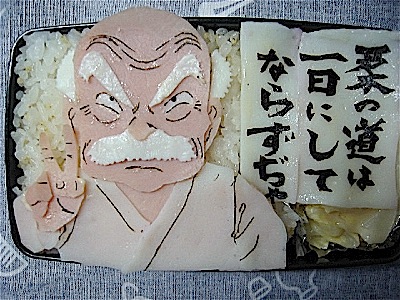 柔の道は
一日にして
ならずぢゃ